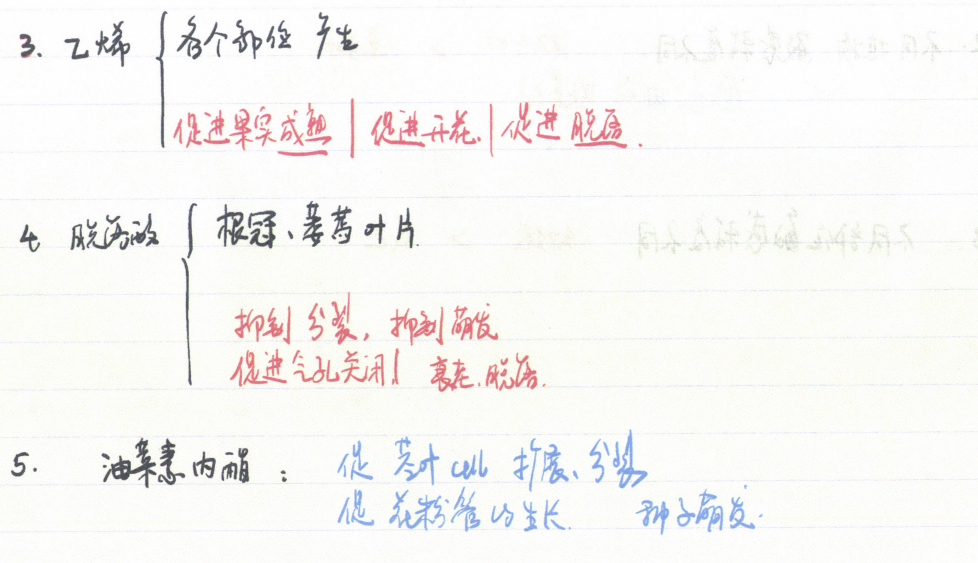 3. 乙烯 各个部位产生
促进果实成熟 | 促进开花. | 促进脱落.
4 脱落酸 根冠、萎蔫叶片.
抑制分裂, 抑制萌发
促进气孔关闭! 衰老.脱落.
5. 油菜素内酯: 促茎叶cell扩展、分裂
促花粉管的生长. 种子萌发.